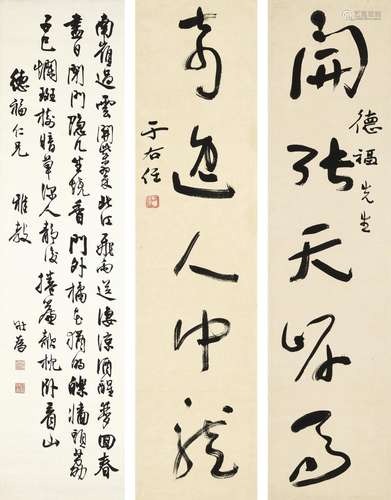 開張天岸馬
德福先生
奇逸人中龍
于右任
南嶺過雲開紫翠北江飛雨送淒涼酒醒夢回春
盡日閉門隱几坐燒香門外橘花猶的皪牆頭荔
子已斕斑樹暗草深人靜處捲簾欹枕臥看山
德福仁兄 雅教